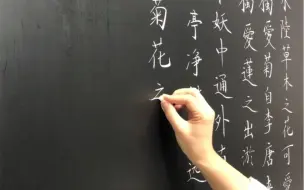 水陸草木之花可愛
獨愛菊自李唐
獨愛蓮之出淤
妖中通外
亭净
远
菊花